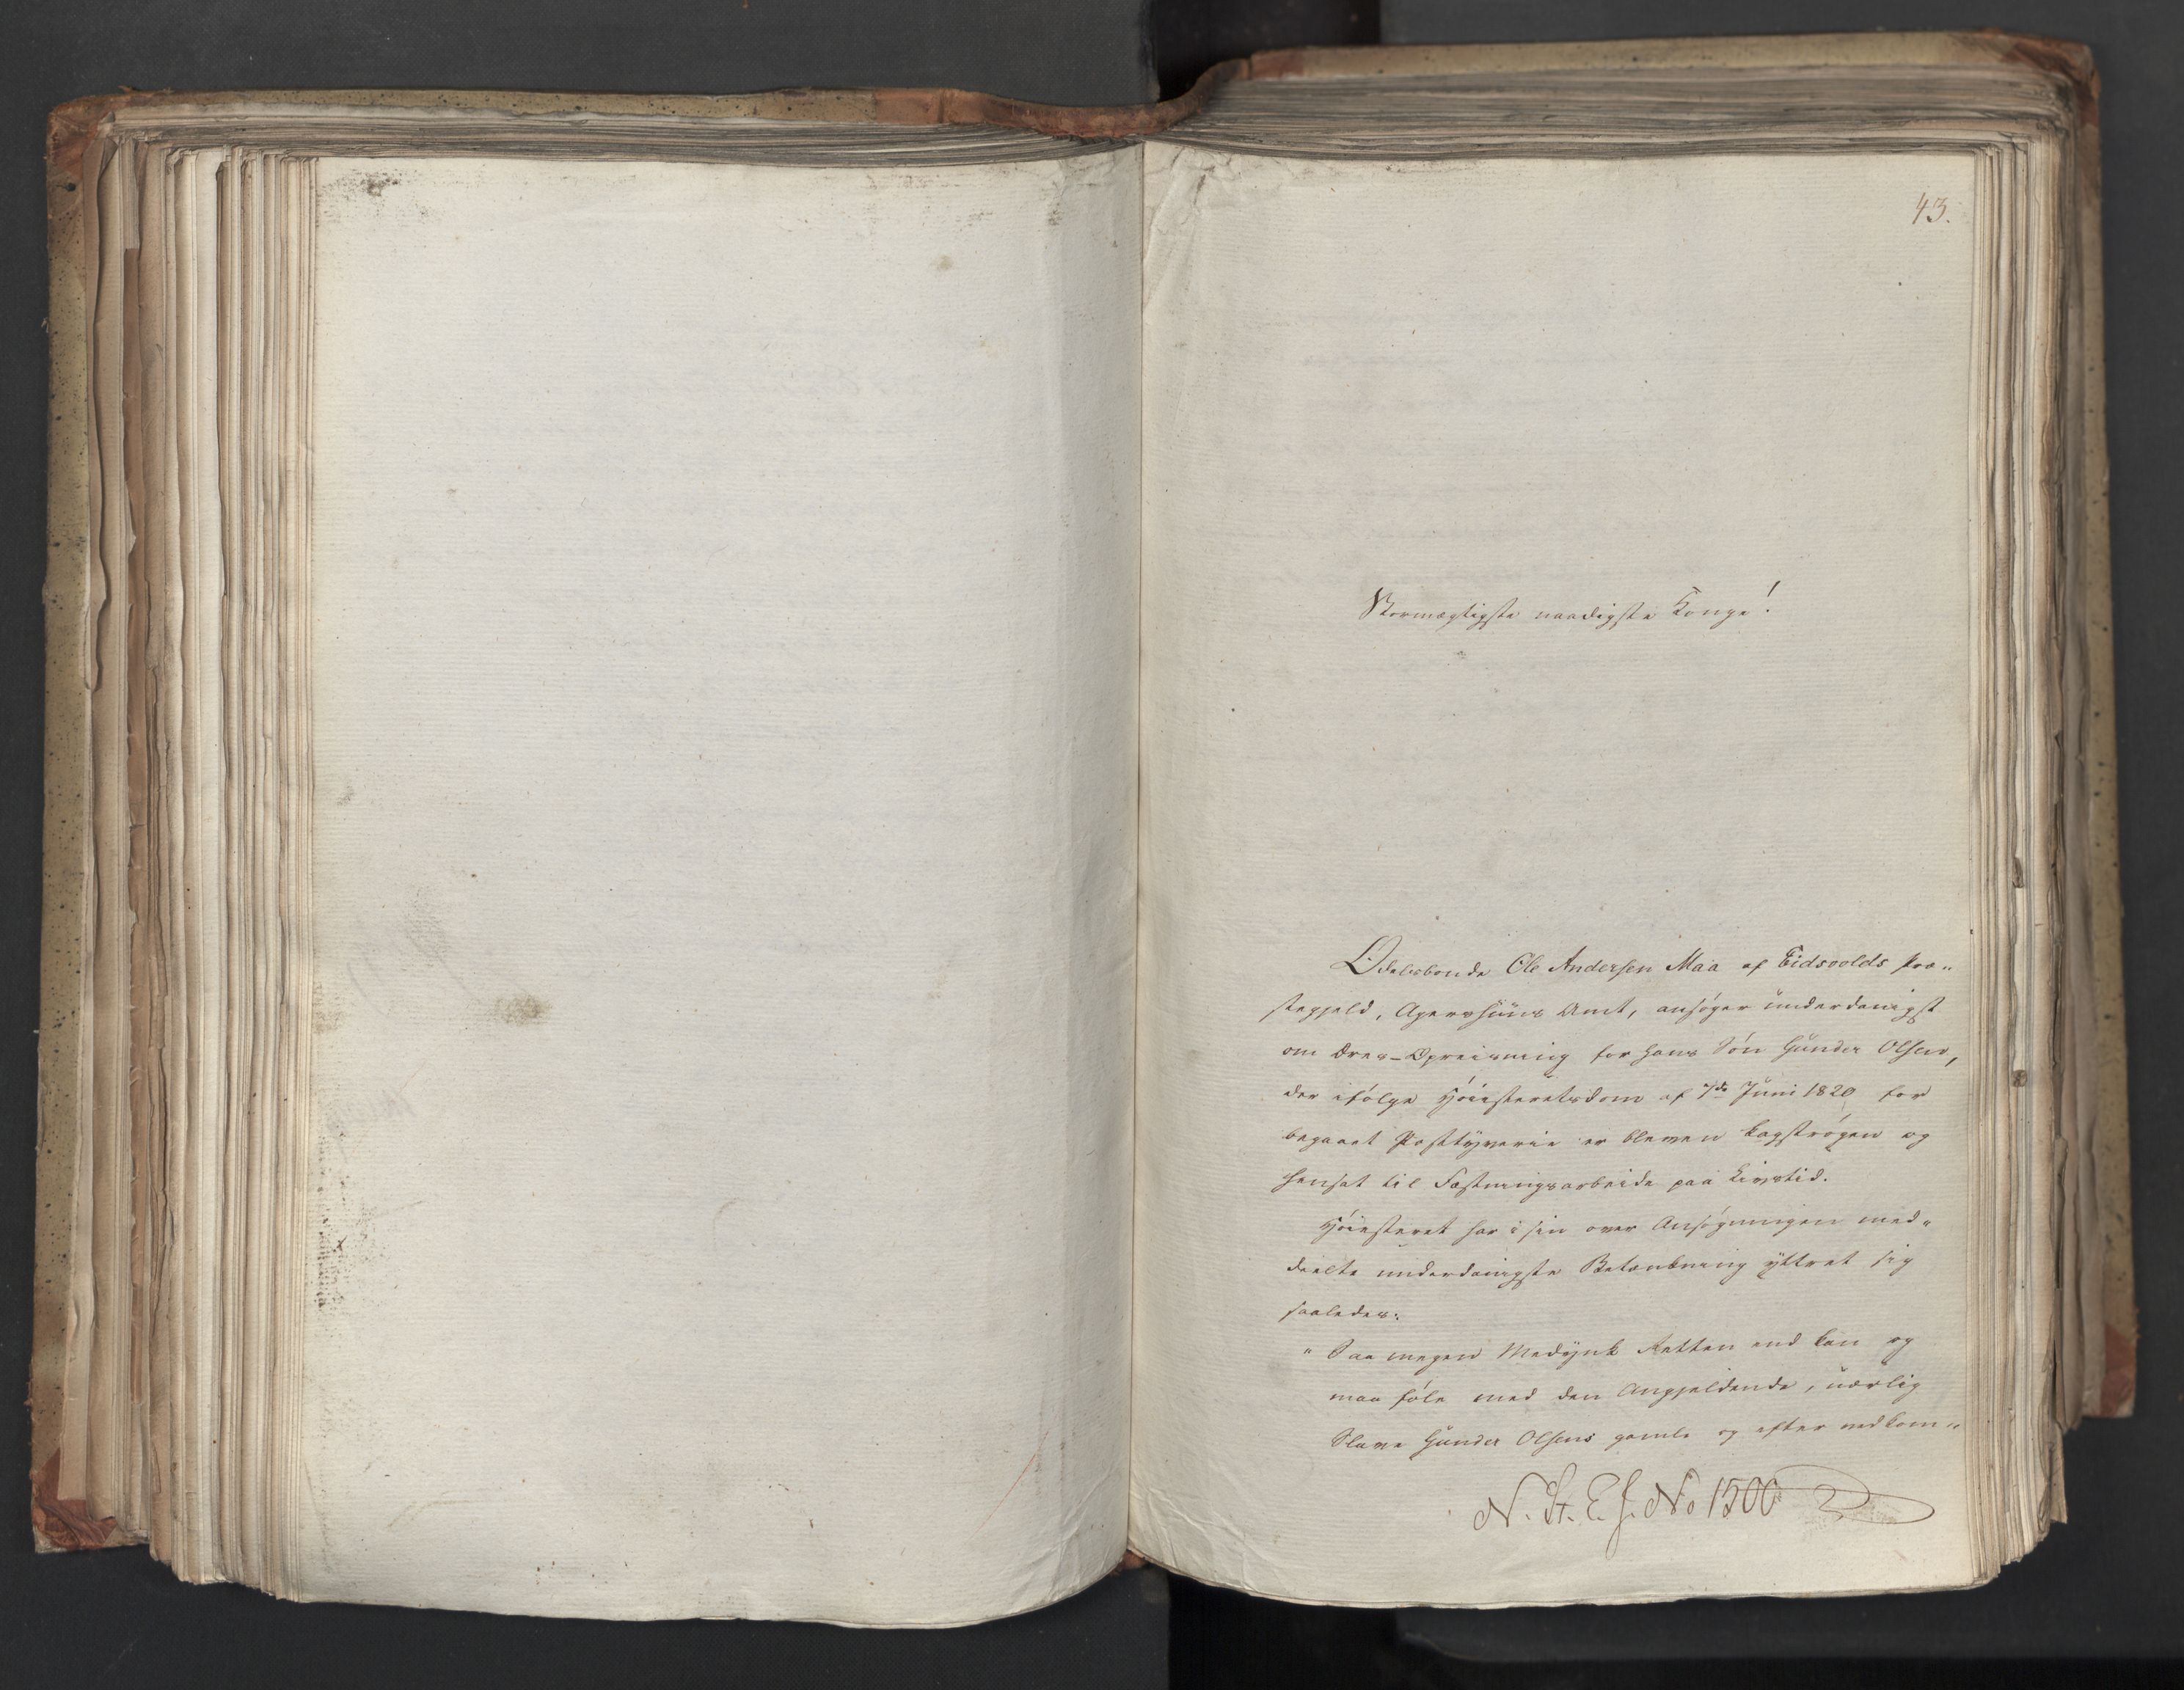 43.
Stormægtigste naadigste Konge!
Odelsbonde Ole Andersen Maa af Eidsvolds Præ„
stegjeld, Agershuus Amt, ansøger underdanigst
om Æres-Opreisning for hans Søn Gunder Olsen,
der ifølge Høiesteretsdom af 7de Juni 1820 for
begaaet Posttyverie er bleven kagstrøgen og
hensat til Fæstningsarbeide paa Livstid.
Høiesteret har i sin over Ansøgningen med„
deelte underdanigste Betænkning yttret sig
saaledes:
" Saa megen Medynk Retten end kan og
maa føle med den Angjeldende, uærlig
Slave Gunder Olsens gamle og efter vedkom„
N. St. E. J. No 1500